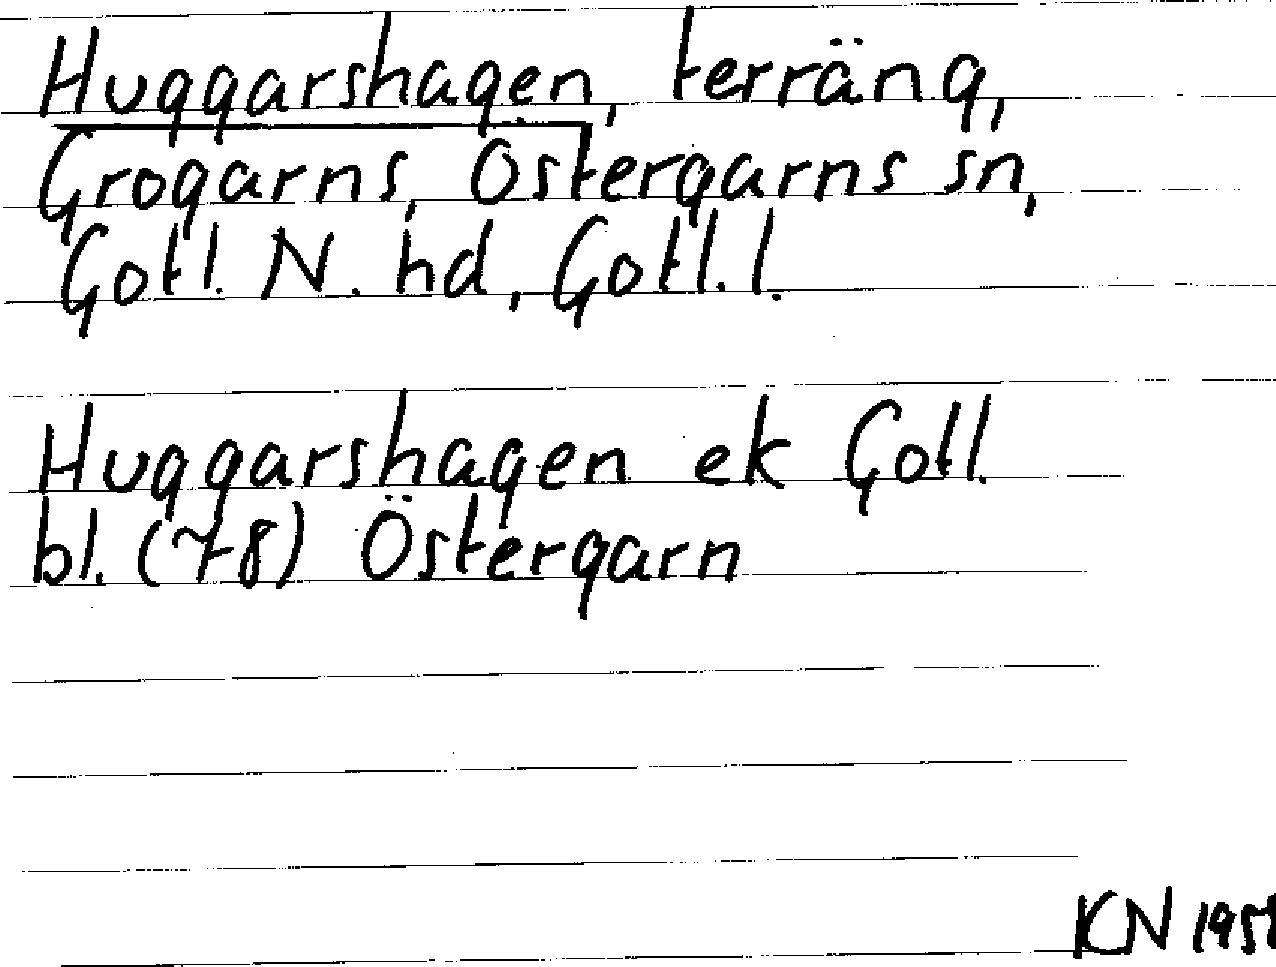 Huggarshagen, terräng,
Grogarns, Östergarns sn,
Gotl. N. hd, Gotl. l.
Huggarshagen ek Gotl.
bl. (78) Östergarn
KN